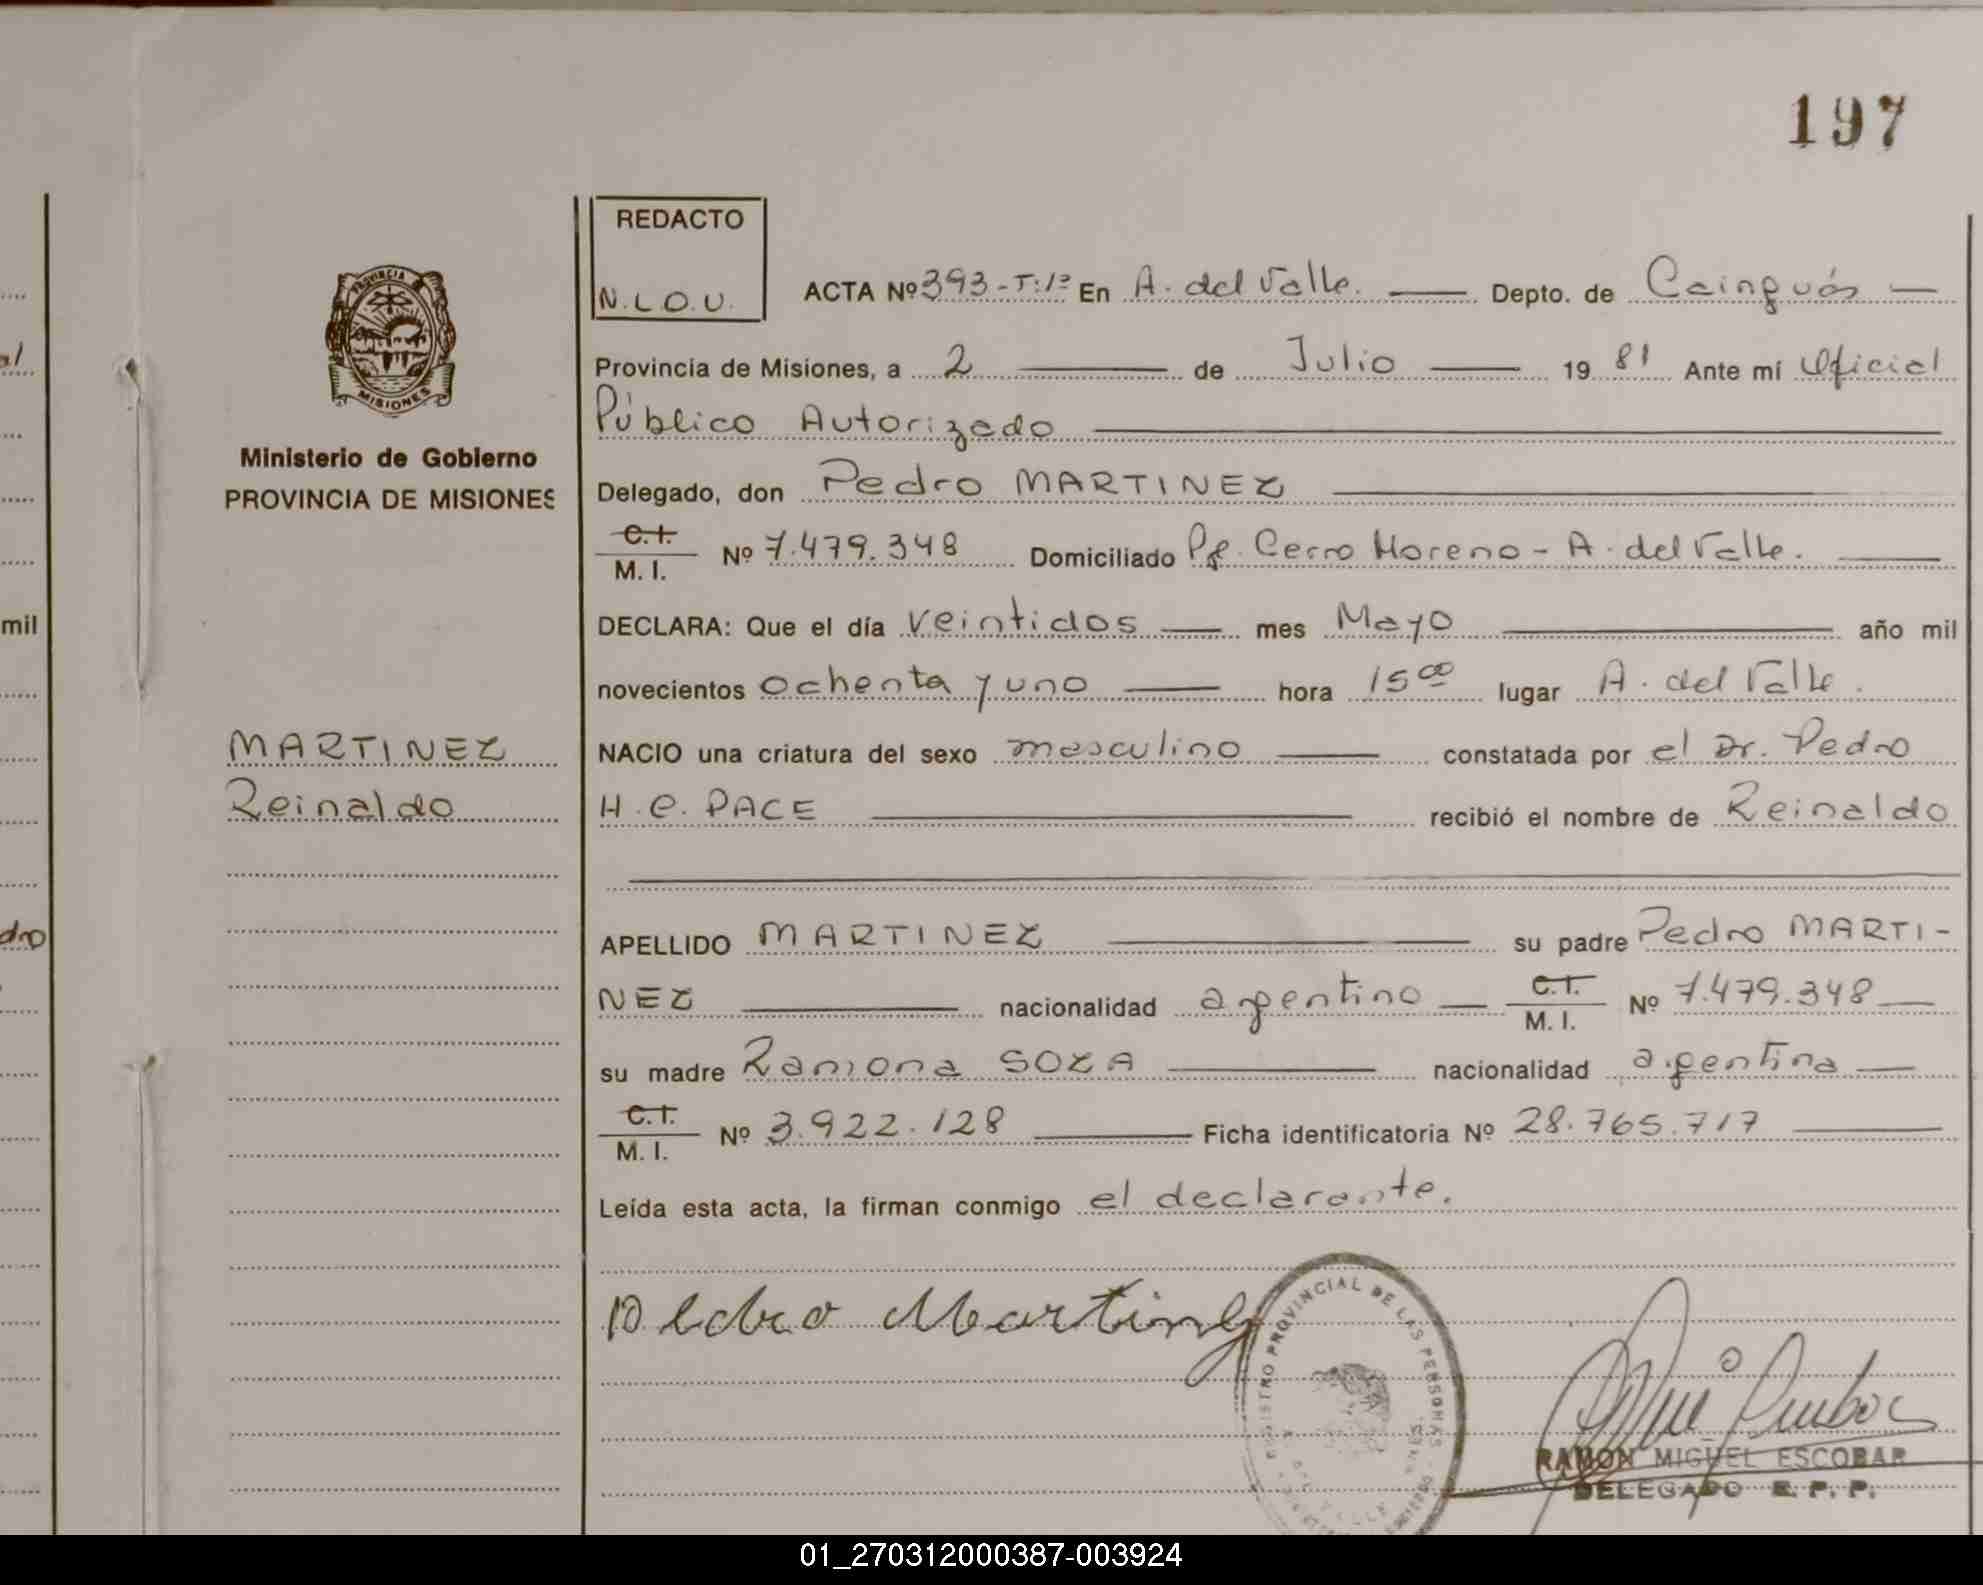 197
REDACTO
N.L.O.U.
PROVINCIA
MISIONES
Ministerio de Gobierno
PROVINCIA DE MISIONES
MARTINEZ
Reinaldo
al
mil
dro
ACTA Nº 393-T:1º En A. del Valle. Depto. de Cainguás
Provincia de Misiones, a 2 de Julio 19 81 Ante mí Oficial
Público Autorizado
Delegado, don Pedro MARTINEZ
C.I. M. I. Nº 7.479.348 Domiciliado Pje. Cerro Moreno - A. del Valle.
DECLARA: Que el día veintidos mes Mayo año mil
novecientos ochenta y uno hora 15 00 lugar A. del Valle.
NACIO una criatura del sexo masculino constatada por el Dr. Pedro
H. C. PACE recibió el nombre de Reinaldo
APELLIDO MARTINEZ su padre Pedro MARTI-
NEZ nacionalidad argentino C.I. M. I. Nº 7.479.348
su madre Ramona SOZA nacionalidad argentina
C.I. M. I. Nº 3.922.128 Ficha identificatoria Nº 28.765.717
Leída esta acta, la firman conmigo el declarante.
Pedro Martinez
REGISTRO PROVINCIAL DE LAS PERSONAS
RAMON MIGUEL ESCOBAR
DELEGADO R. P. P.
01_270312000387-003924